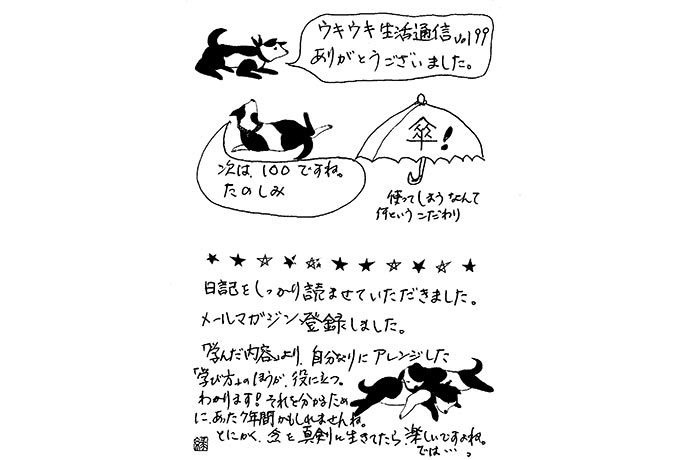 ウキウキ生活通信vol99
ありがとうございました。
次は、100ですね。
たのしみ
傘!
使ってしまうなんて
何というこだわり
日記をしっかり読ませていただきました。
メールマガジン、登録しました。
「学んだ内容」より、自分なりにアレンジした
「学び方」のほうが、役に立つ。
わかります!それを分かるため
に、あった7年間かもしれませんね。
とにかく、念を真剣に生きてたら、楽しいですよね。
では…。